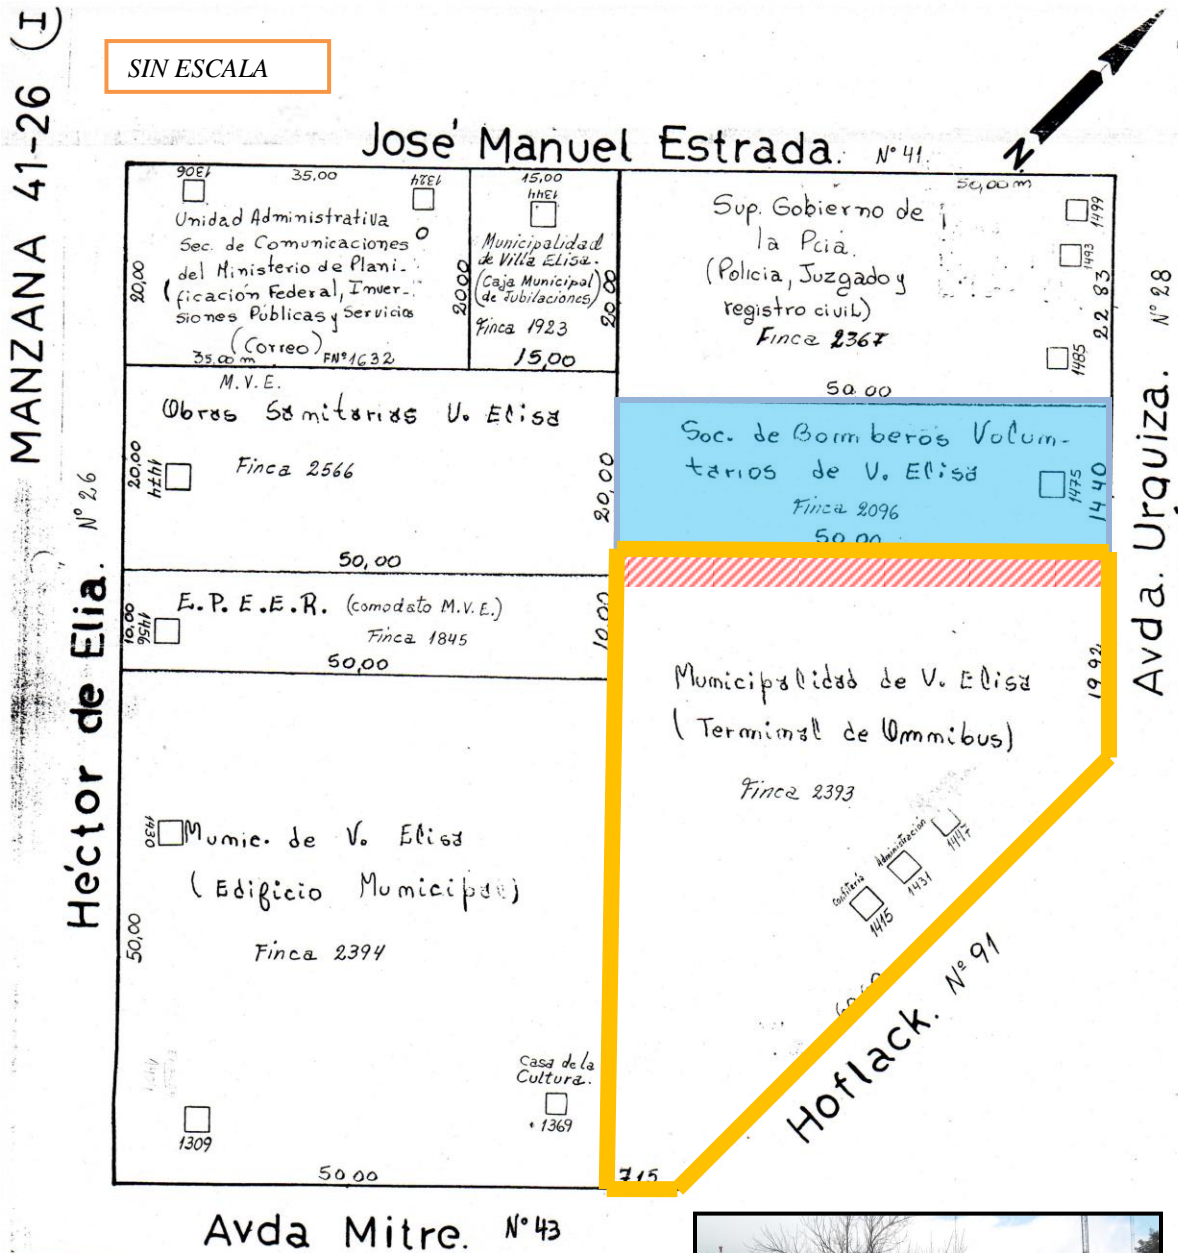 MANZANA 41-26 (I)
SIN ESCALA
José Manuel Estrada. Nº 41.
N
1306
35,00
1324
Unidad Administrativa
Sec. de Comunicaciones
del Ministerio de Plani-
ficación Federal, Inver-
siones Públicas y Servicios
(Correo)
20,00
20,00
35,00 m
FNº1632
15,00
1344
Municipalidad
de Villa Elisa.
(Caja Municipal
de Jubilaciones)
Finca 1923
20,00
15,00
50,00 m
Sup. Gobierno de
la Pcia.
(Policia, Juzgado y
registro civil)
Finca 2367
1499
1493
22 83
1485
50.00
Nº 28
Avda. Urquiza.
M.V.E.
Obras Sanitarias V. Elisa
Finca 2566
20,00
1474
20,00
50,00
Soc. de Bomberos Volun-
tarios de V. Elisa
Finca 2096
1475
14 40
50.00
Nº 26
Héctor de Elia.
E.P.E.E.R. (comodato M.V.E.)
Finca 1845
10,00
1456
10,00
50,00
Municipalidad de V. Elisa
(Terminal de Omnibus)
Finca 2393
19 92
Confiteria
1415
Administración
1431
1447
1430
Munic. de V. Elisa
(Edificio Municipal)
Finca 2394
50,00
Casa de la
Cultura.
1369
1309
50 00
715
Hoflack. Nº 91
Avda Mitre. Nº 43